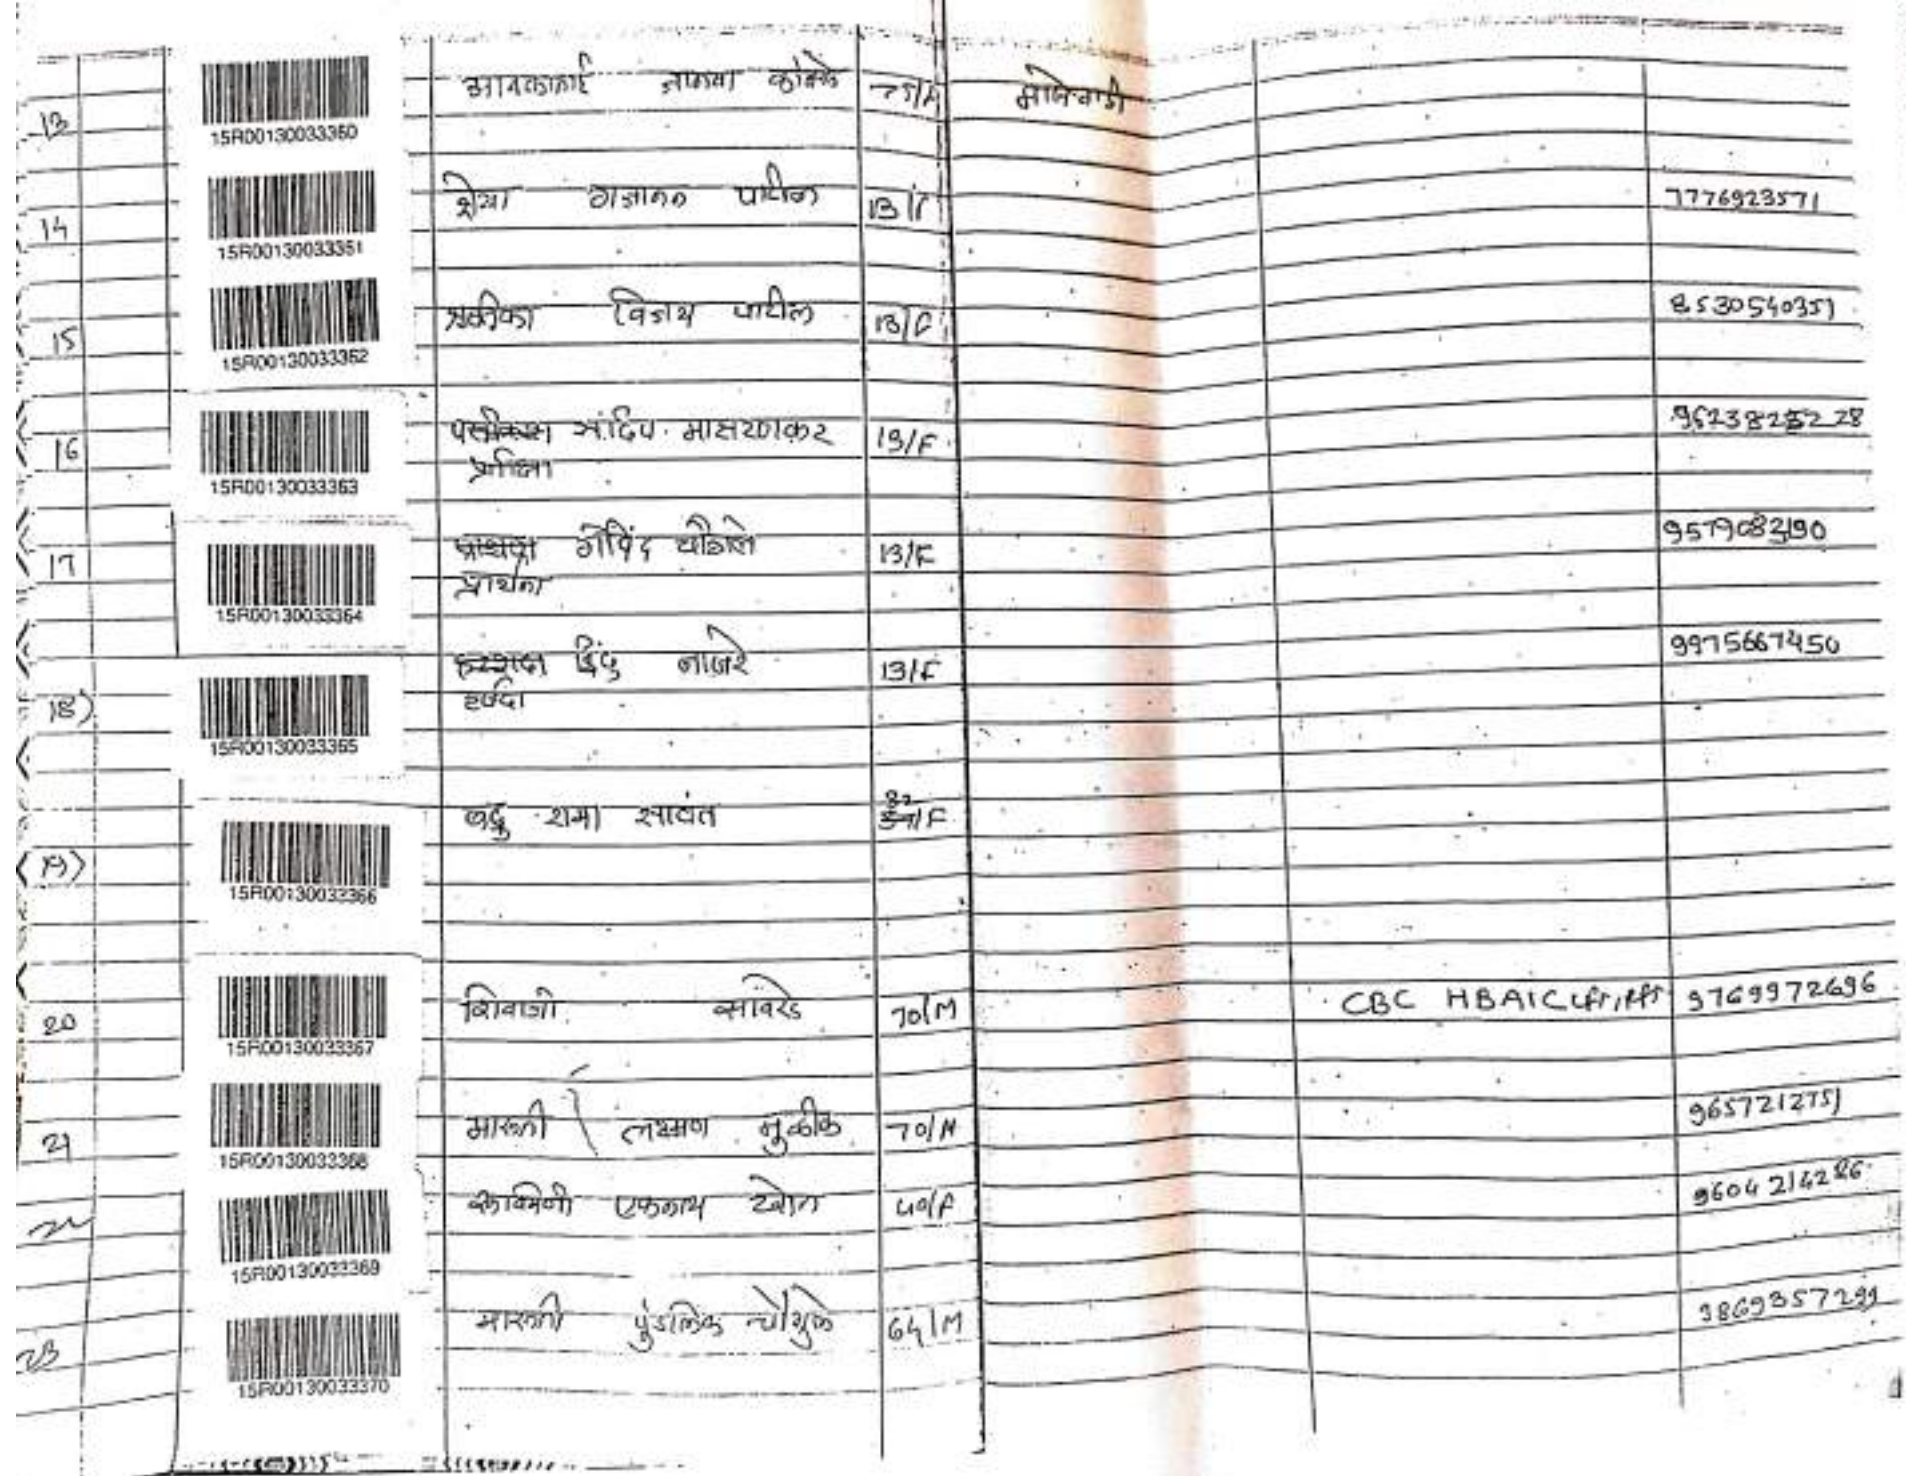 13 15R00130033360 75/F
14 15R00130033361 श्रेया गजानन पाटील 13/F 7776923571
15 15R00130033362 विजय पाटील 13/F 8530540351
16 15R00130033363 संदिप मासरणकर 13/F
17 15R00130033364 गोविंद चौगले 13/F 9579082190
प्रार्थना
18) 15R00130033365 नाजरे 13/F 9975667450
हर्षदा
19) 15R00130033366 रामा सावंत 82 /F
20 15R00130033367 शिवाजी 70/M CBC HBA1C LFT, RFT 9769972696
21 15R00130033368 मारुती लक्ष्मण मुळीक 70/M 9657212751
22 15R00130033369 रुक्मिणी एकनाथ खोत 40/F 9604214286
23 15R00130033370 मारुती पुंडलिक चौगुले 64/M 9869357299